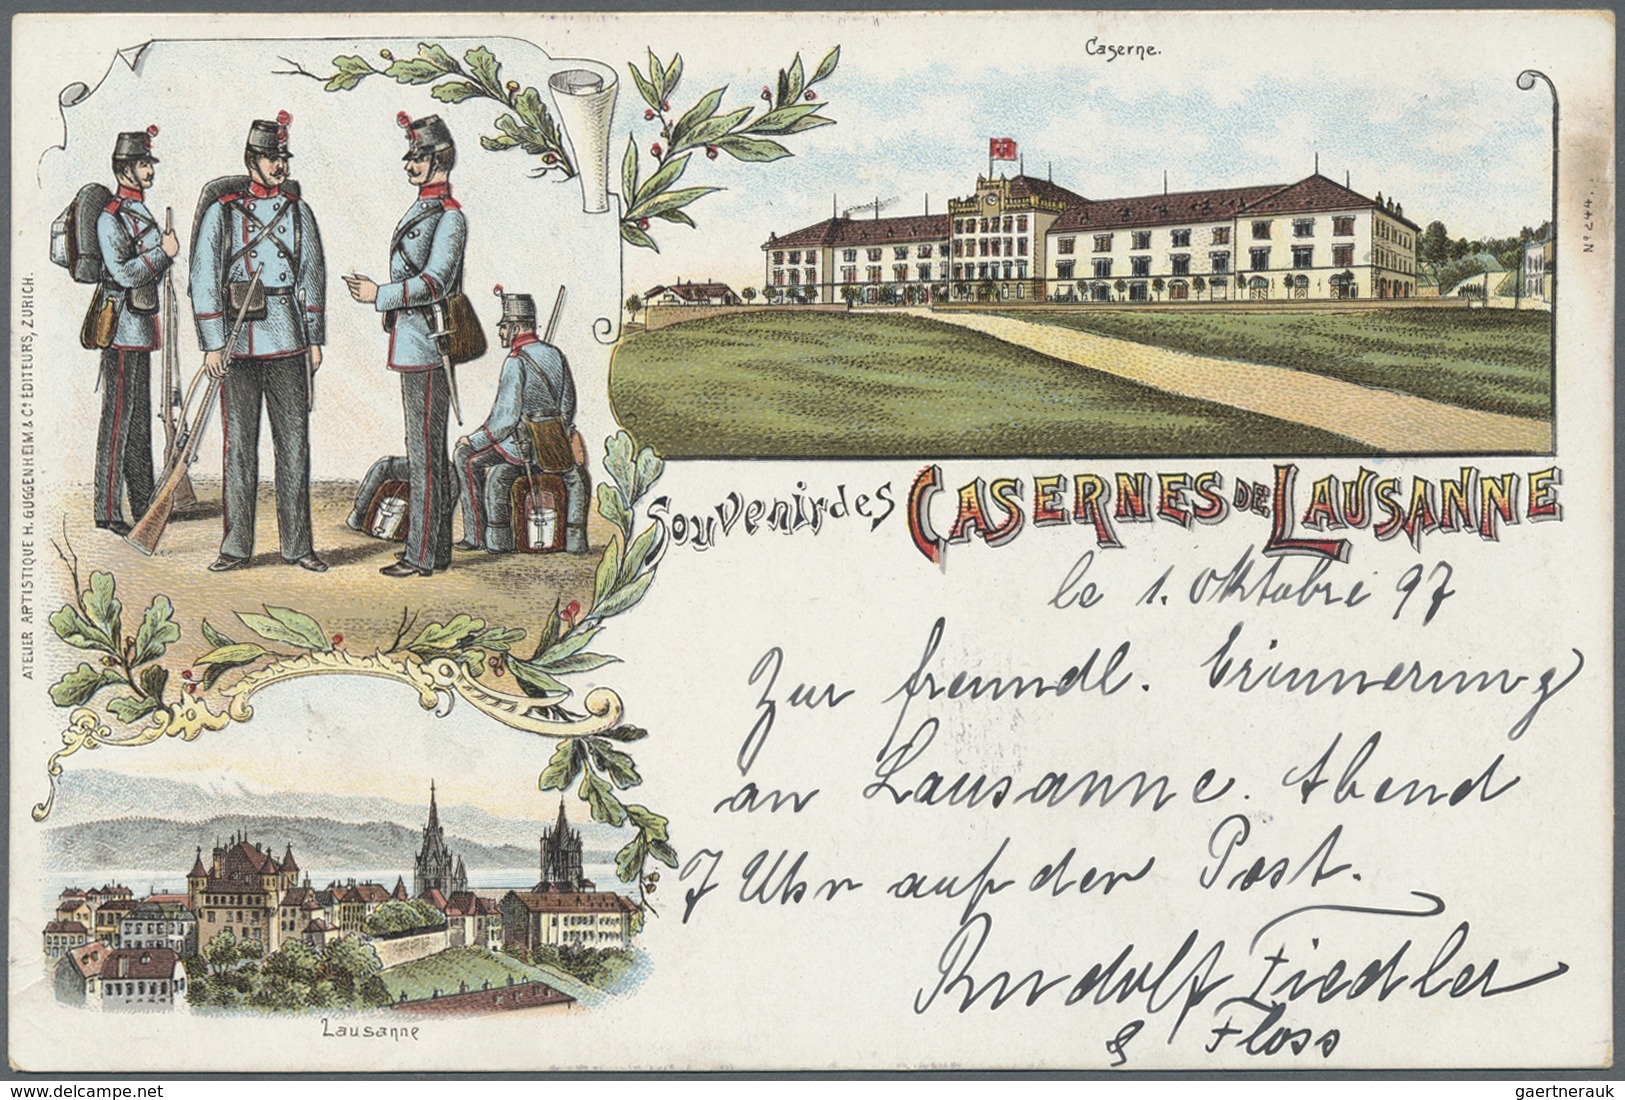 Caserne.
Nº 244.
ATELIER ARTISTIQUE H. GUGGENHEIM & Cº EDITEURS, ZURICH.
Souvenir des CASERNES DE LAUSANNE
le 1. Oktobre 97
Zur freundl. Erinnerung
an Lausanne. Abend
7 Uhr auf der Post.
Rudolf Fiedler
& Floss
Lausanne
delcampe.net
gaertnerauk